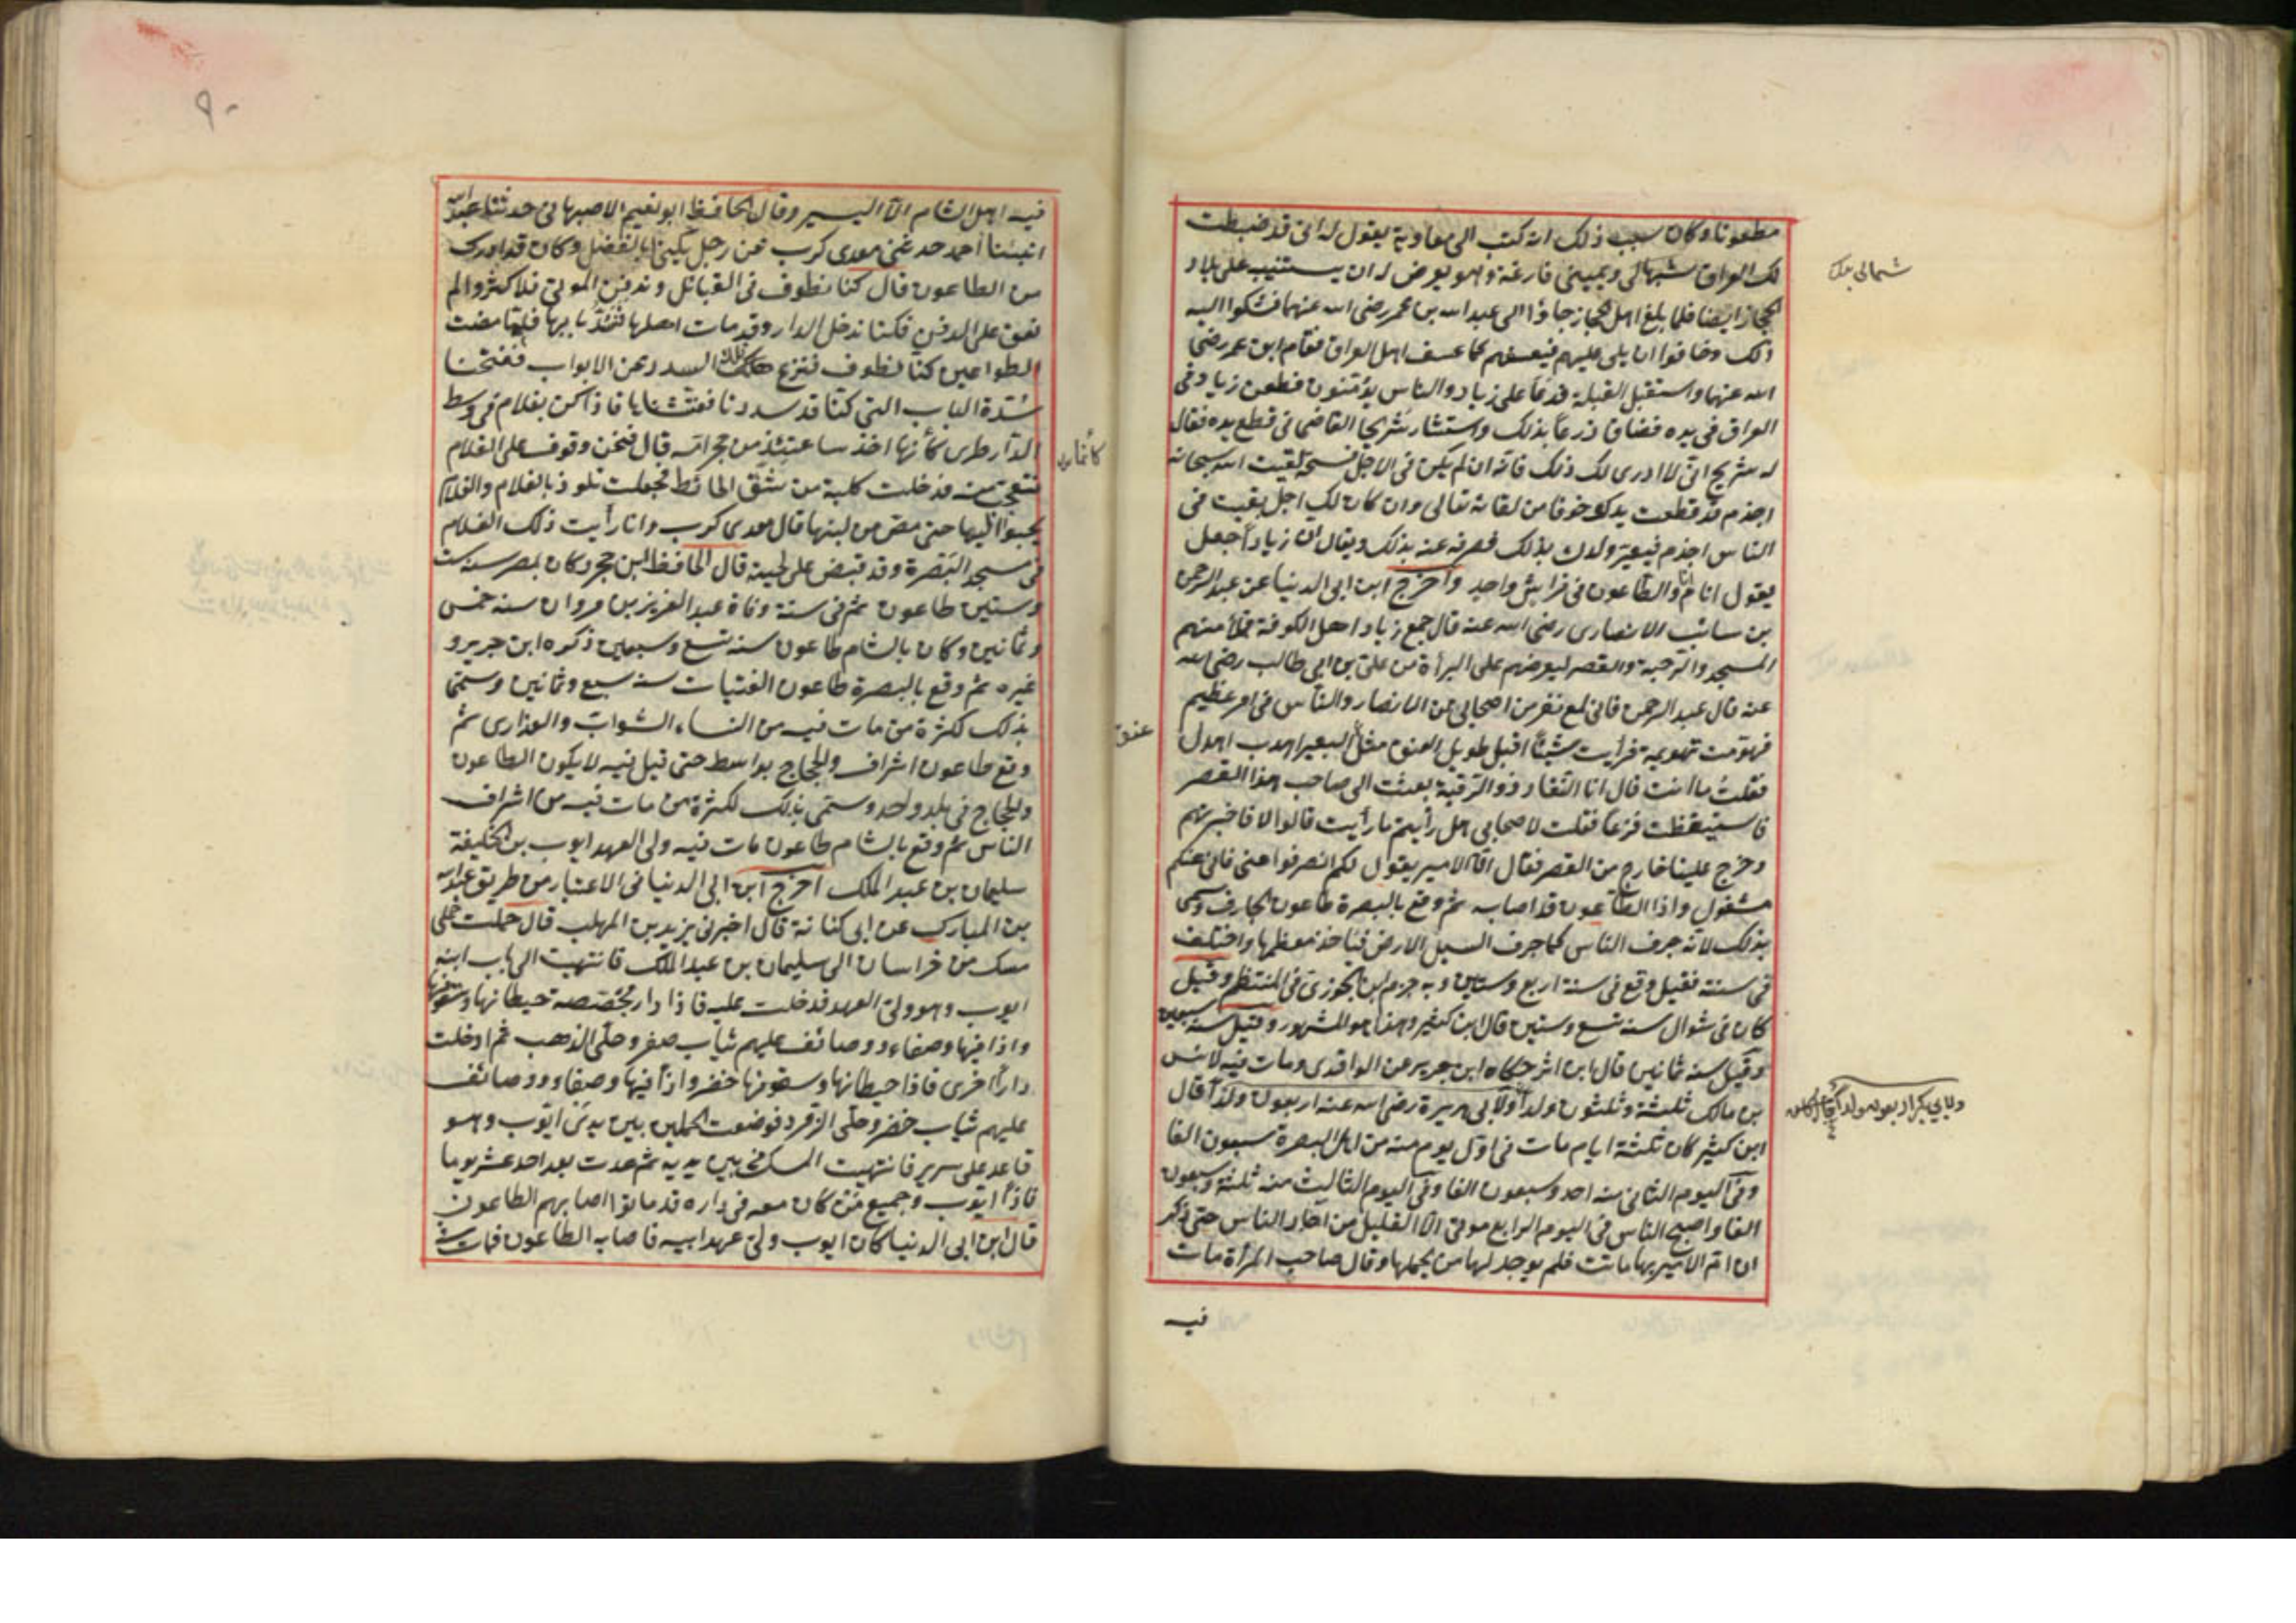 مطعونا وكان سبب ذلك انه كتب الى معاوية يقول له انى قد ضبطت
لك العراق بشمالى ويمينى فارغة وهو يعرض له ان يستنيب على بلاد
الحجاز ايضا فلما بلغ اهل الحجاز جاؤا الى عبد الله بن عمر رضى الله عنهما فشكوا اليه
ذلك وخافوا ان يلى عليهم فيعسفهم كما عسف اهل العراق فقام ابن عمر رضى
الله عنهما واستقبل القبلة فدعا على زياد والناس يؤمنون فطعن زياد فى
العراق فى يده فضاق ذرعا بذلك واستشار شريحا القاضى فى قطع يده فقال
له شريح انى لا ادرى لك ذلك فانه ان لم يكن فى الاجل فسحة لقيت الله سبحانه
اجذم قد قطعت يدك خوفا من لقائه تعالى وان كان لك اجل بقيت فى
الناس اجذم فيعير ولدك بذلك فصرفه عنه بذلك ويقال ان زيادا جعل
يقول انام انا والطاعون فى فراش واحد واخرج ابن ابى الدنيا عن عبد الرحمن
بن سائب الانصارى رضى الله عنه قال جمع زياد اهل الكوفة فملأ منهم
المسجد والرحبة والقصر ليعرضهم على البرأة من على بن ابى طالب رضى الله
عنه قال عبد الرحمن فانى لمع نفر من اصحابى من الانصار والناس فى امر عظيم
فهومت تهويمة فرأيت شيئا اقبل طويل العنق مثل البعير اهدب اهدل
فقلت ما انت قال انا النقاد ذو الرقبة بعثت الى صاحب هذا القصر
فاستيقظت فزعا فقلت لاصحابى هل رأيتم ما رأيت قالوا لا فاخبرتهم
وخرج علينا خارج من القصر فقال ان الامير يقول لكم انصرفوا عنى فانى عنكم
مشغول واذا الطاعون قد اصابه ثم وقع بالبصرة طاعون الجارف وسمى
بذلك لانه جرف الناس كما جرف السيل الارض فيأخذ معظمها واختلف
فى سنته فقيل وقع فى سنة اربع وستين وبه جزم ابن الجوزى فى المنتظم وقيل
كان فى شوال سنة تسع وستين قال ابن كثير وهذا هو المشهور وقيل سنة سبعين
وقيل سنة ثمانين قال ابن اثر حكاه ابن جرير عن الواقدى ومات فيه لانس
بن مالك ثلثة وثلثون ولدا ولابى هريرة رضى الله عنه اربعون ولدا قال
ابن كثير كان ثلثة ايام مات فى اول يوم منه من اهل البصرة سبعون الفا
وفى اليوم الثانى منه احد وسبعون الفا وفى اليوم الثالث منه ثلثة وسبعون
الفا واصبح الناس فى اليوم الرابع موتى الا القليل من آحاد الناس حتى ذكر
ان ام الامير بها ماتت فلم يوجد لها من يحملها وقال صاحب المرأة مات
فيه
شمالى
عنق
ولابي بكر اربعون ولدا قال
٩٠
فيه اهل الشام الا اليسير وقال الحافظ ابو نعيم الاصبهانى حدثنا عبد الله
انبئنا احمد حدثنى معدى كرب عن رجل يكنى ابا الفضل وكان قد ادرك
من الطاعون قال كنا نطوف فى القبائل وندفن الموتى فلا كثروا لم
نقو على الدفن فكنا ندخل الدار وقد مات اهلها فنسد بابها فلما مضت
الطواعين كنا نطوف فننزع تلك السدد عن الابواب ففتحنا
سدة الباب التى كنا قد سددنا ففتشنا ها فاذا كن بغلام فى وسط
الدار طرى كأنها اخذ ساعتئذ من حجر امه قال فنحن وقوف على الغلام
نتعجب منه فدخلت كلبة من شق الحائط فجعلت تلوذ بالغلام والغلام
يحبوا اليها حتى مص من لبنها قال معدى كرب وانا رأيت ذلك الغلام
فى مسجد البصرة وقد قبض على لحيته قال الحافظ ابن حجر وكان بمصر سنة ست
وستين طاعون ثم فى سنة وفاة عبد العزيز بن مروان سنة خمس
وثمانين وكان بالشام طاعون سنة تسع وسبعين ذكره ابن جرير و
غيره ثم وقع بالبصرة طاعون الفتيات سنة سبع وثمانين وسمى
بذلك لكثرة من مات فيه من النساء الشواب والعذارى ثم
وقع طاعون اشراف والحجاج بواسط حتى قيل فيه لا يكون الطاعون
والحجاج فى بلد واحد وسمى بذلك لكثرة من مات فيه من اشراف
الناس ثم وقع بالشام طاعون مات فيه ولى العهد ايوب بن الخليفة
سليمان بن عبد الملك اخرج ابن ابى الدنيا فى الاعتبار من طريق عبد الله
بن المبارك عن ابى كنانة قال اخبرنى يزيد بن المهلب قال حملت حملى
مسك من خراسان الى سليمان بن عبد الملك فانتهيت الى باب ابنه
ايوب وهو ولى العهد فدخلت عليه فاذا دار مجصصة حيطانها وسقوفها
واذا فيها وصفاء ووصائف عليهم ثياب صفر وحلى الذهب ثم ادخلت
دارا اخرى فاذا حيطانها وسقوفها خضر واذا فيها وصفاء ووصائف
عليهم ثياب خضر وحلى الزمرد فوضعت الحملين بين يدى ايوب وهو
قاعد على سرير فانتهبت المسك من بين يديه ثم عدت بعد احد عشر يوما
فاذا ايوب وجميع من كان معه فى داره قد ماتوا اصابهم الطاعون
قال ابن ابى الدنيا كان ايوب ولى عهد ابيه فاصابه الطاعون فمات سنة
كأنما